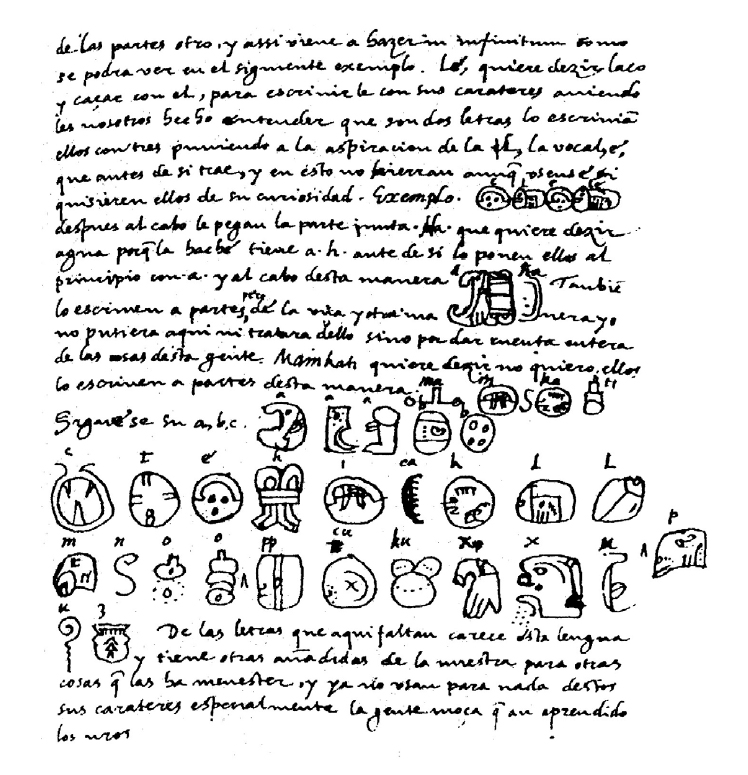 de las partes otro, y assi viene a hazer in infinitum como
se podra ver en el siguiente exemplo. Lé, quiere dezir laço
y caçar con el, para escrivirle con sus carateres aviendo
les nosotros hecho entender que son dos letras lo escrivian
ellos con tres puniendo a la aspiracion de la l, la vocal, é,
que antes de si trae, y en esto no hierran aunq̃ usense si
quisieren ellos de su curiosidad. Exemplo. e l e lé
despues al cabo le pegan la parte junta. Ha. que quiere dezir
agua porq̃ la haché tiene a. h. ante de si lo ponen ellos al
principio con a. y al cabo desta manera a ha Tambiē
lo escriven a partes, pero de la una y otra ma nera yo
no pusiera aqui ni tratara dello sino por dar cuenta entera
de las cosas desta gente. Mainkati quiere dezir no quiero, ellos
lo escriven a partes desta manera. ma in ka ti
Siguese su a, b, c. a a a b b
c t é h i ca k l l
m n o o pp cu ku x x u p
u z De las letras que aqui faltan carece esta lengua
y tiene otras añadidas de la nuestra para otras
cosas q̃ las ha menester, y ya no usan para nada destos
sus carateres especialmente la gente moça q̃ an aprendido
los nros